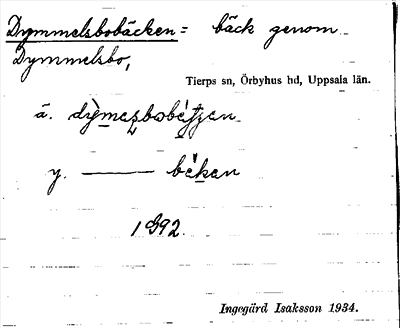 Dymmelsbobäcken = bäck genom
Dymmelsbo,
Tierps sn, Örbyhus hd, Uppsala län.
ä.
y. ——— bȧ̀kan
1992.
Ingegärd Isaksson 1934.